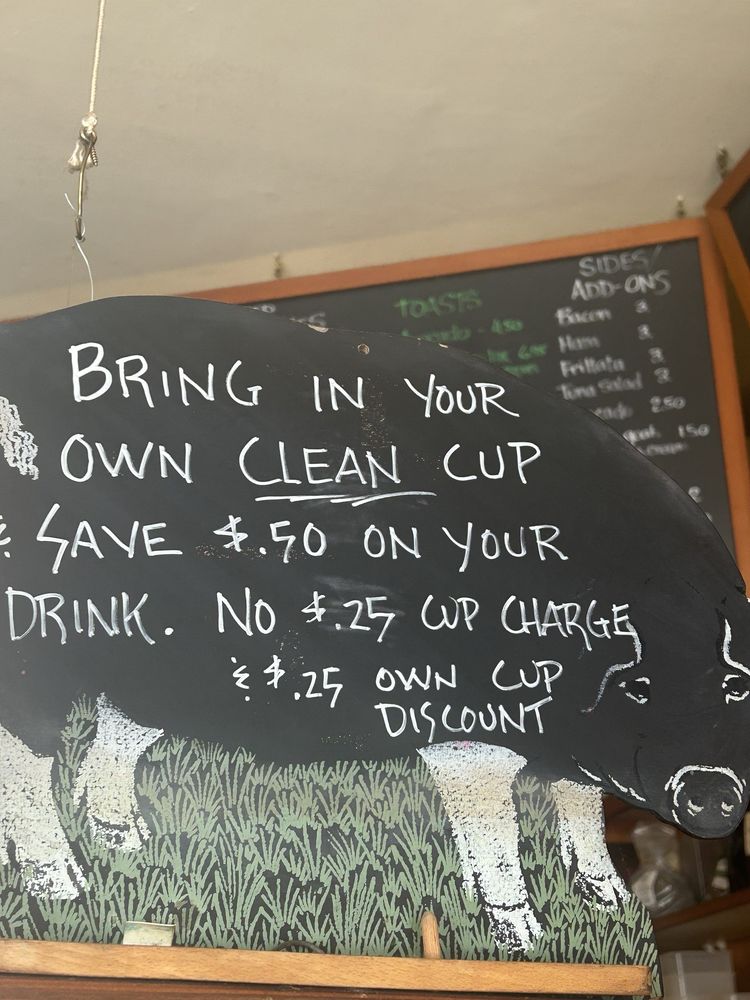 BRING IN YOUR
OWN CLEAN CUP
& SAVE $.50 ON YOUR
DRINK. NO $.25 CUP CHARGE
& $.25 OWN CUP
DISCOUNT
TOASTS
SIDES/
ADD-ONS
Bacon 3
Ham 3
Frittata 3
Tuna Salad 3
2.50
1.50